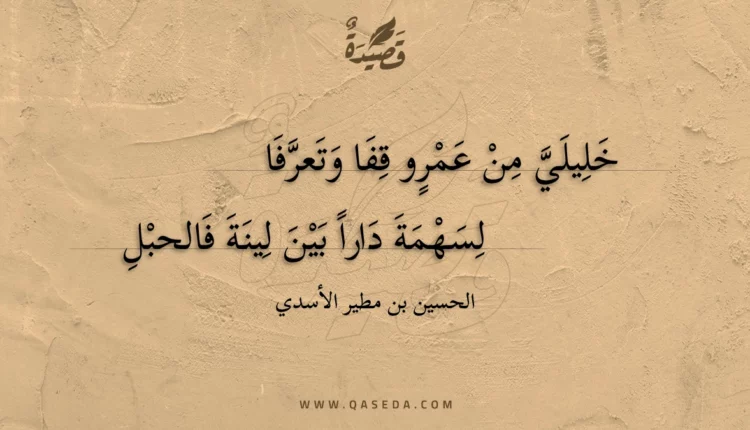 قَصِيدَةٌ
خَلِيلَيَّ مِنْ عَمْرٍو قِفَا وَتَعرَّفَا
لِسَهْمَةَ دَاراً بَيْنَ لِينَةَ فَالحبْلِ
الحسين بن مطير الأسدي
WWW.QASEDA.COM